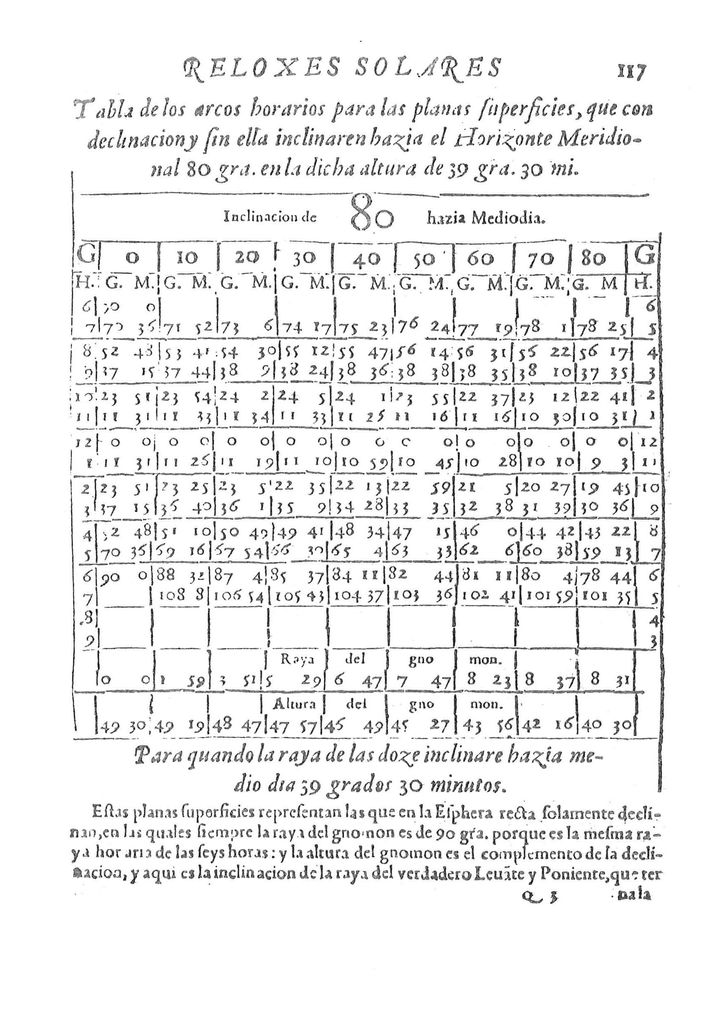 RELOXES SOLARES 117
Tabla de los arcos horarios para las planas ſuperficies, que con
declinacion y ſin ella inclinaren hazia el Horizonte Meridio-
nal 80 gra. en la dicha altura de 39 gra. 30 mi.
Inclinacion de 80 hazia Mediodia.
G 0 10 20 30 40 50 60 70 80 G
H. G. M. G. M. G. M. G. M. G. M. G. M. G. M. G. M. G. M H.
6 0 6
7 70 36 71 52 73 6 74 17 75 23 76 24 77 19 78 1 78 25 5
8 52 48 53 41 54 30 55 12 55 47 56 14 56 31 56 22 56 17 4
9 37 15 37 44 38 9 38 24 38 36 38 38 38 35 38 10 37 35 3
10 23 51 23 54 24 2 24 5 24 1 23 55 22 37 23 12 22 41 2
11 11 31 11 33 11 34 11 33 11 25 11 16 11 16 10 30 10 31 1
12 0 0 0 0 0 0 0 0 0 0 0 0 0 0 0 0 0 0 12
1 11 31 11 26 11 19 11 10 10 59 10 45 10 28 10 10 9 3 11
2 23 51 23 25 23 5 22 35 22 13 22 59 21 5 20 27 19 45 10
3 37 15 36 40 36 1 35 9 34 28 33 35 32 38 31 39 30 36 9
4 52 48 51 10 50 49 49 41 48 34 47 15 46 0 44 42 43 22 8
5 70 36 69 16 67 54 66 30 65 4 63 33 62 6 60 38 59 13 7
6 90 0 88 32 87 4 85 37 84 11 82 44 81 11 80 4 78 44 6
7 108 8 106 54 105 43 104 37 103 36 102 41 101 59 101 35 5
8 4
9 3
Raya del gno mon.
0 0 1 59 3 51 5 29 6 47 7 47 8 23 8 37 8 31
Altura del gno mon.
49 30 49 19 48 47 47 57 46 49 45 27 43 56 42 16 40 30
Para quando la raya de las doze inclinare hazia me-
dio dia 39 grados 30 minutos.
Eſtas planas ſuperficies repreſentan las que en la Eſphera recta ſolamente decli-
nan, en las quales ſiempre la raya del gnomon es de 90 gra. porque es la meſma ra-
ya horaria de las ſeys horas: y la altura del gnomon es el complemento de la decli-
nacion, y aqui es la inclinacion de la raya del verdadero Leuãte y Poniente, que ter
Q 3 nala